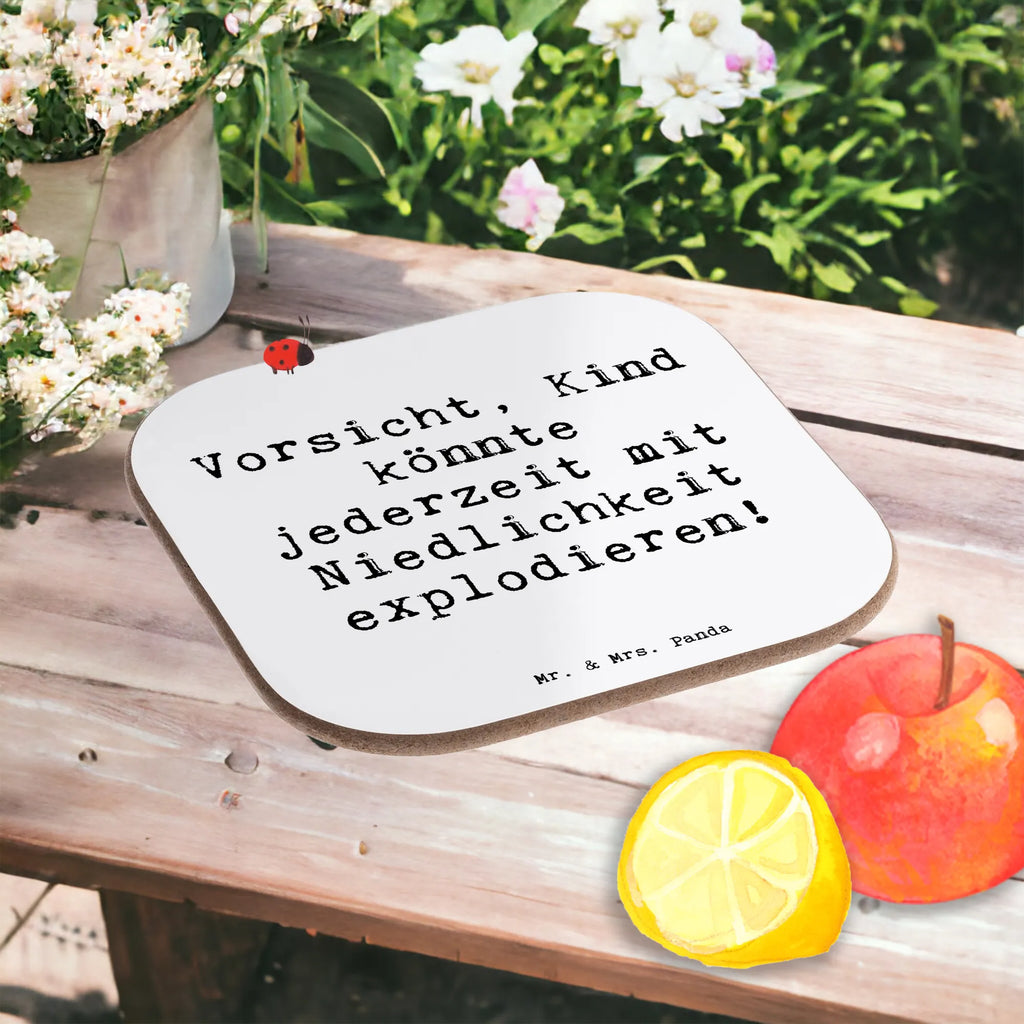 Vorsicht, Kind
könnte
jederzeit mit
Niedlichkeit
explodieren!
Mr. & Mrs. Panda